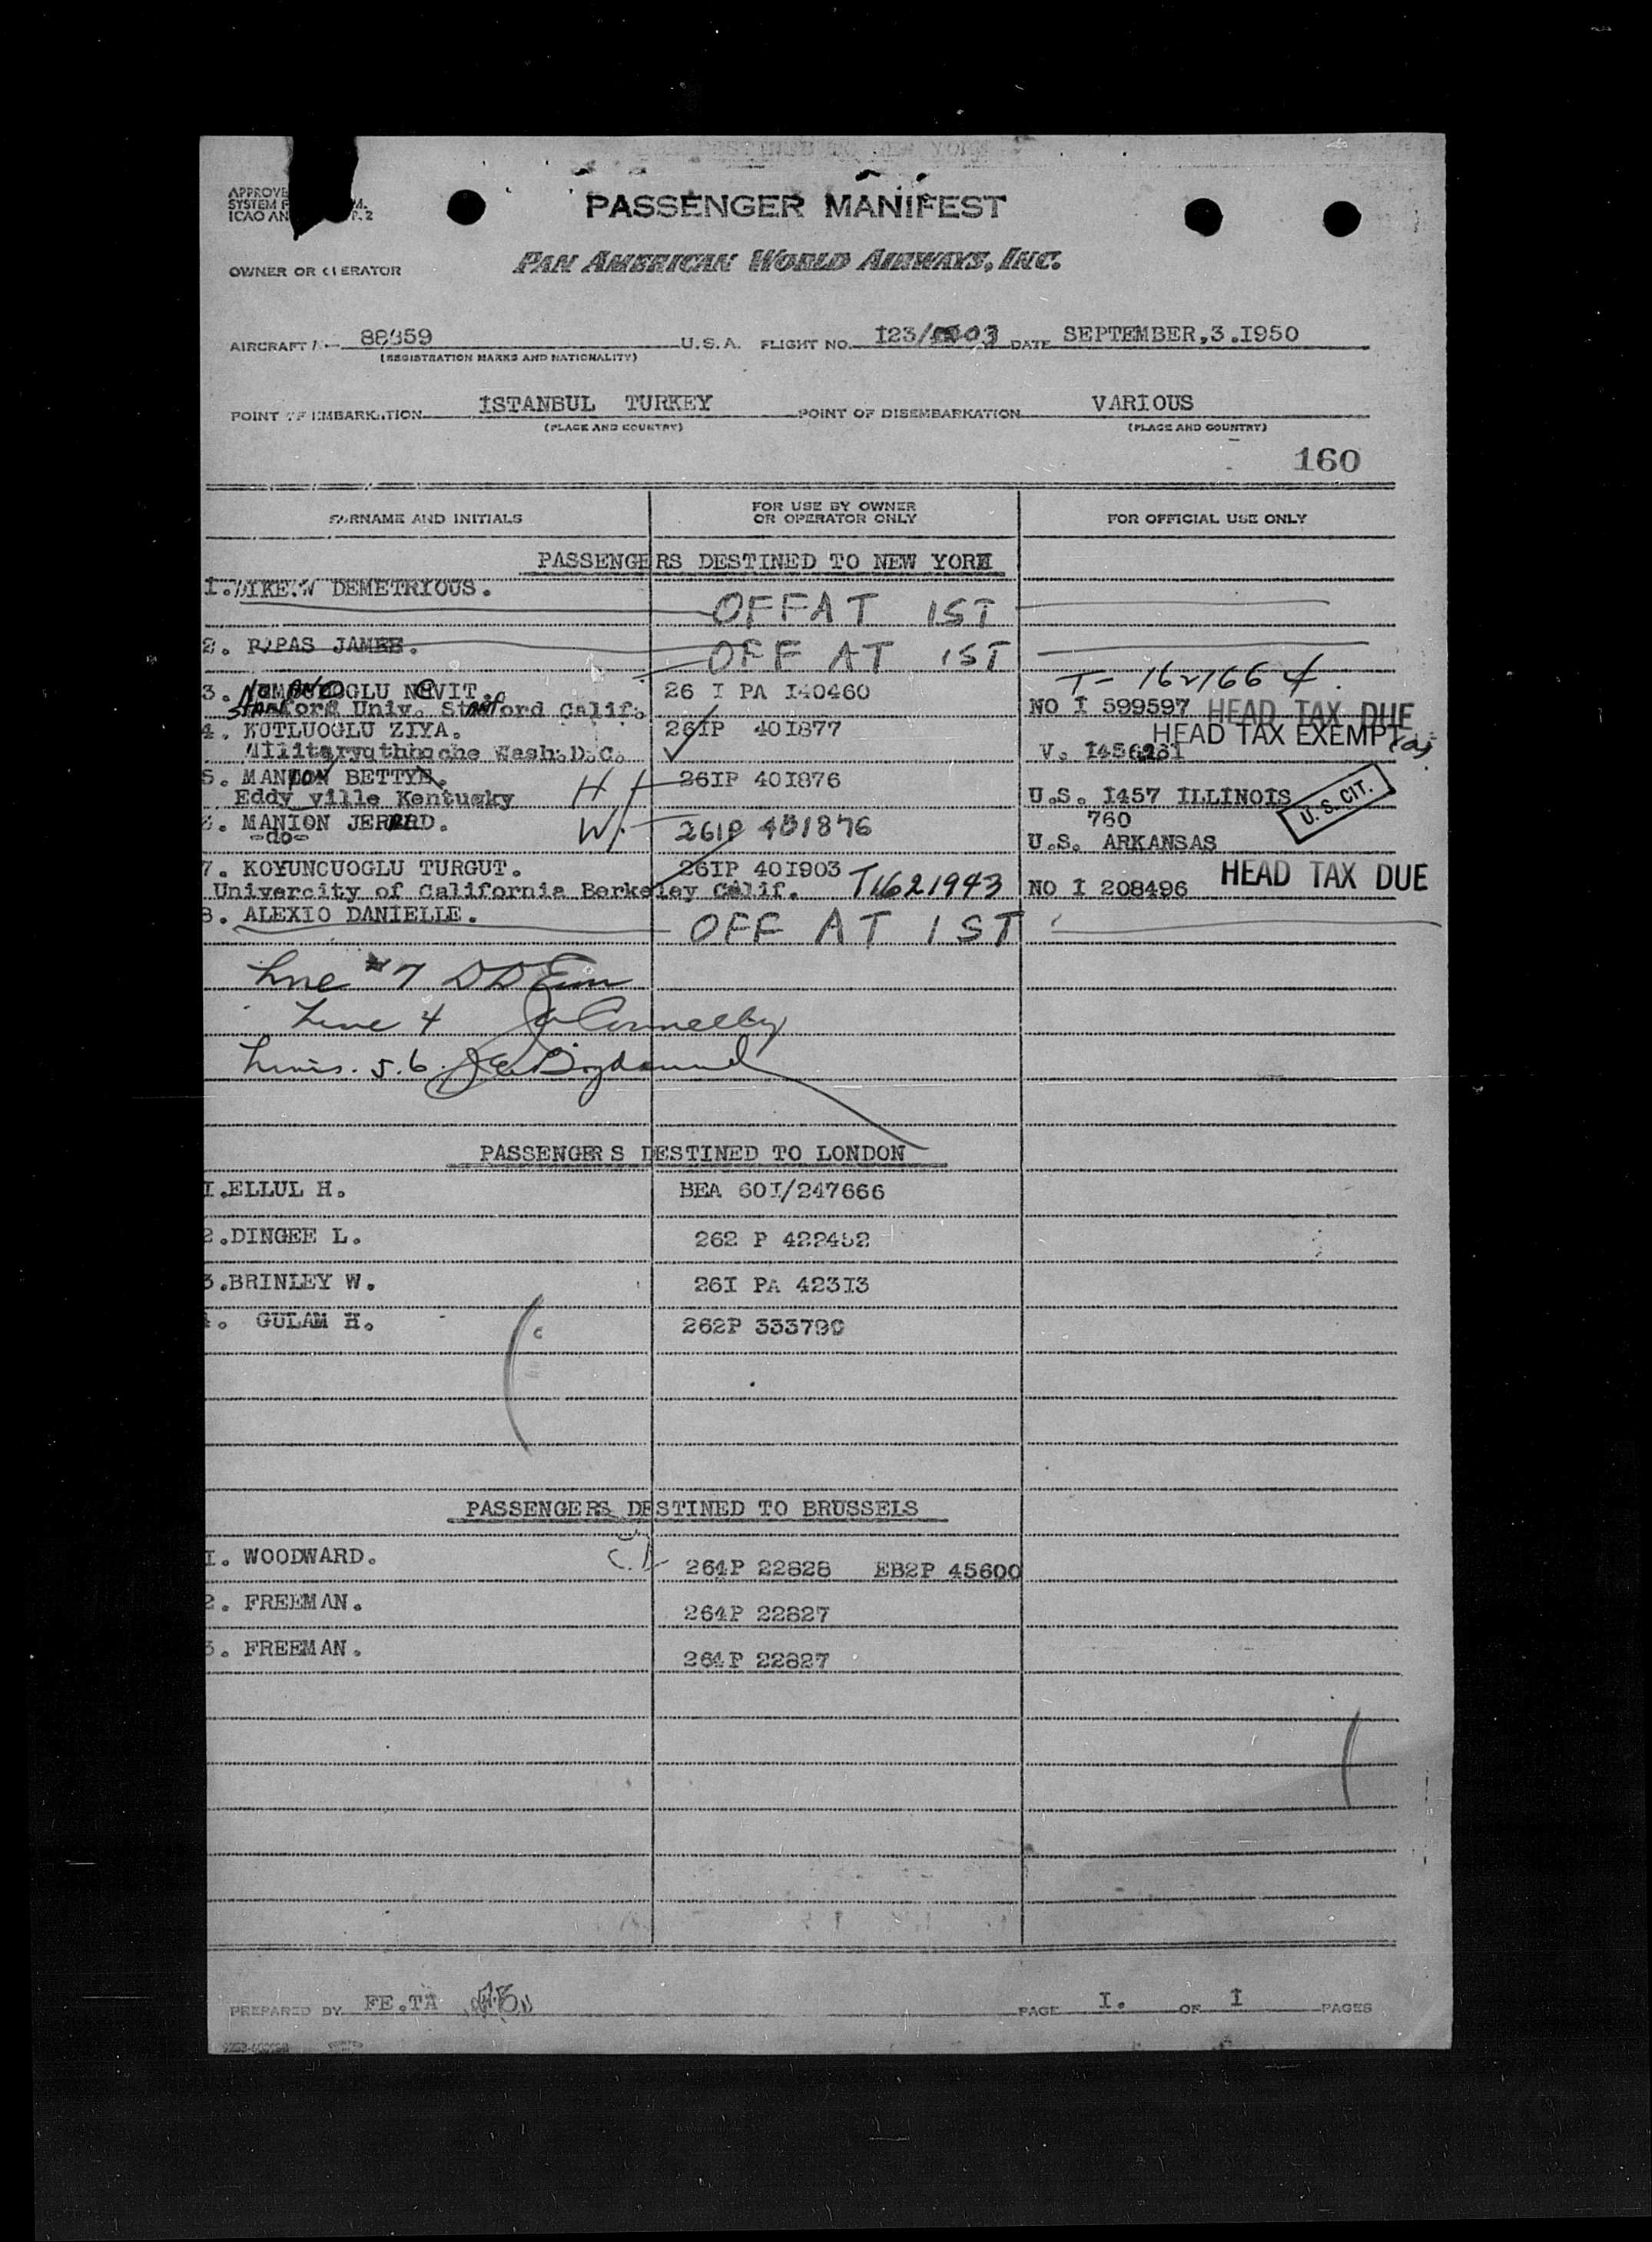 PASSENGER MANIFEST
PAN AMERICAN WORLD AIRWAYS, INC.
APPROVE
SYSTEM F M.
ICAO AN P. 2
OWNER OR OPERATOR
AIRCRAFT 88959 U.S.A. FLIGHT NO. 123/ 03 DATE SEPTEMBER,3.I950
(REGISTRATION MARKS AND NATIONALITY)
POINT OF EMBARKATION ISTANBUL TURKEY POINT OF DISEMBARKATION VARIOUS
(PLACE AND COUNTRY) (PLACE AND COUNTRY)
160
SURNAME AND INITIALS FOR USE BY OWNER OR OPERATOR ONLY FOR OFFICIAL USE ONLY
PASSENGERS DESTINED TO NEW YORK
1. DEMETRIOUS. OFF AT 1ST
2. PAPAS JAMES. OFF AT 1ST
T- 1621664
3. OGLU NEVIT. 26 I PA I40460 NO I 599597 HEAD TAX DUE
Stanford Univ. Stanford Calif.
4. KUTLUOGLU ZIYA. 26IP 40I877 HEAD TAX EXEMPT
Wash.D.C. V.
5. MANION BETTY. H 26IP 40I876 U.S. I457 ILLINOIS U.S. CIT.
Eddy ville Kentucky
6. MANION JERARD. W. 261P 401876 760
-do- U.S. ARKANSAS
7. KOYUNCUOGLU TURGUT. 26IP 40I903 HEAD TAX DUE
Univercity of California Berkeley Calif. T1621943 NO I 208496
8. ALEXIO DANIELLE. OFF AT 1ST
Line #7
Line 4 Connelly
Lines. 5.6.
PASSENGERS DESTINED TO LONDON
I.ELLUL H. BEA 60I/247666
2.DINGEE L. 262 P 422452
3.BRINLEY W. 26I PA 423I3
4. GULAM H. 262P 333790
PASSENGERS DESTINED TO BRUSSELS
I. WOODWARD. 264P 22828 EB2P 45600
2. FREEMAN. 264P 22827
3. FREEMAN. 264P 22827
PREPARED BY FE.TA PAGE I. OF I PAGES